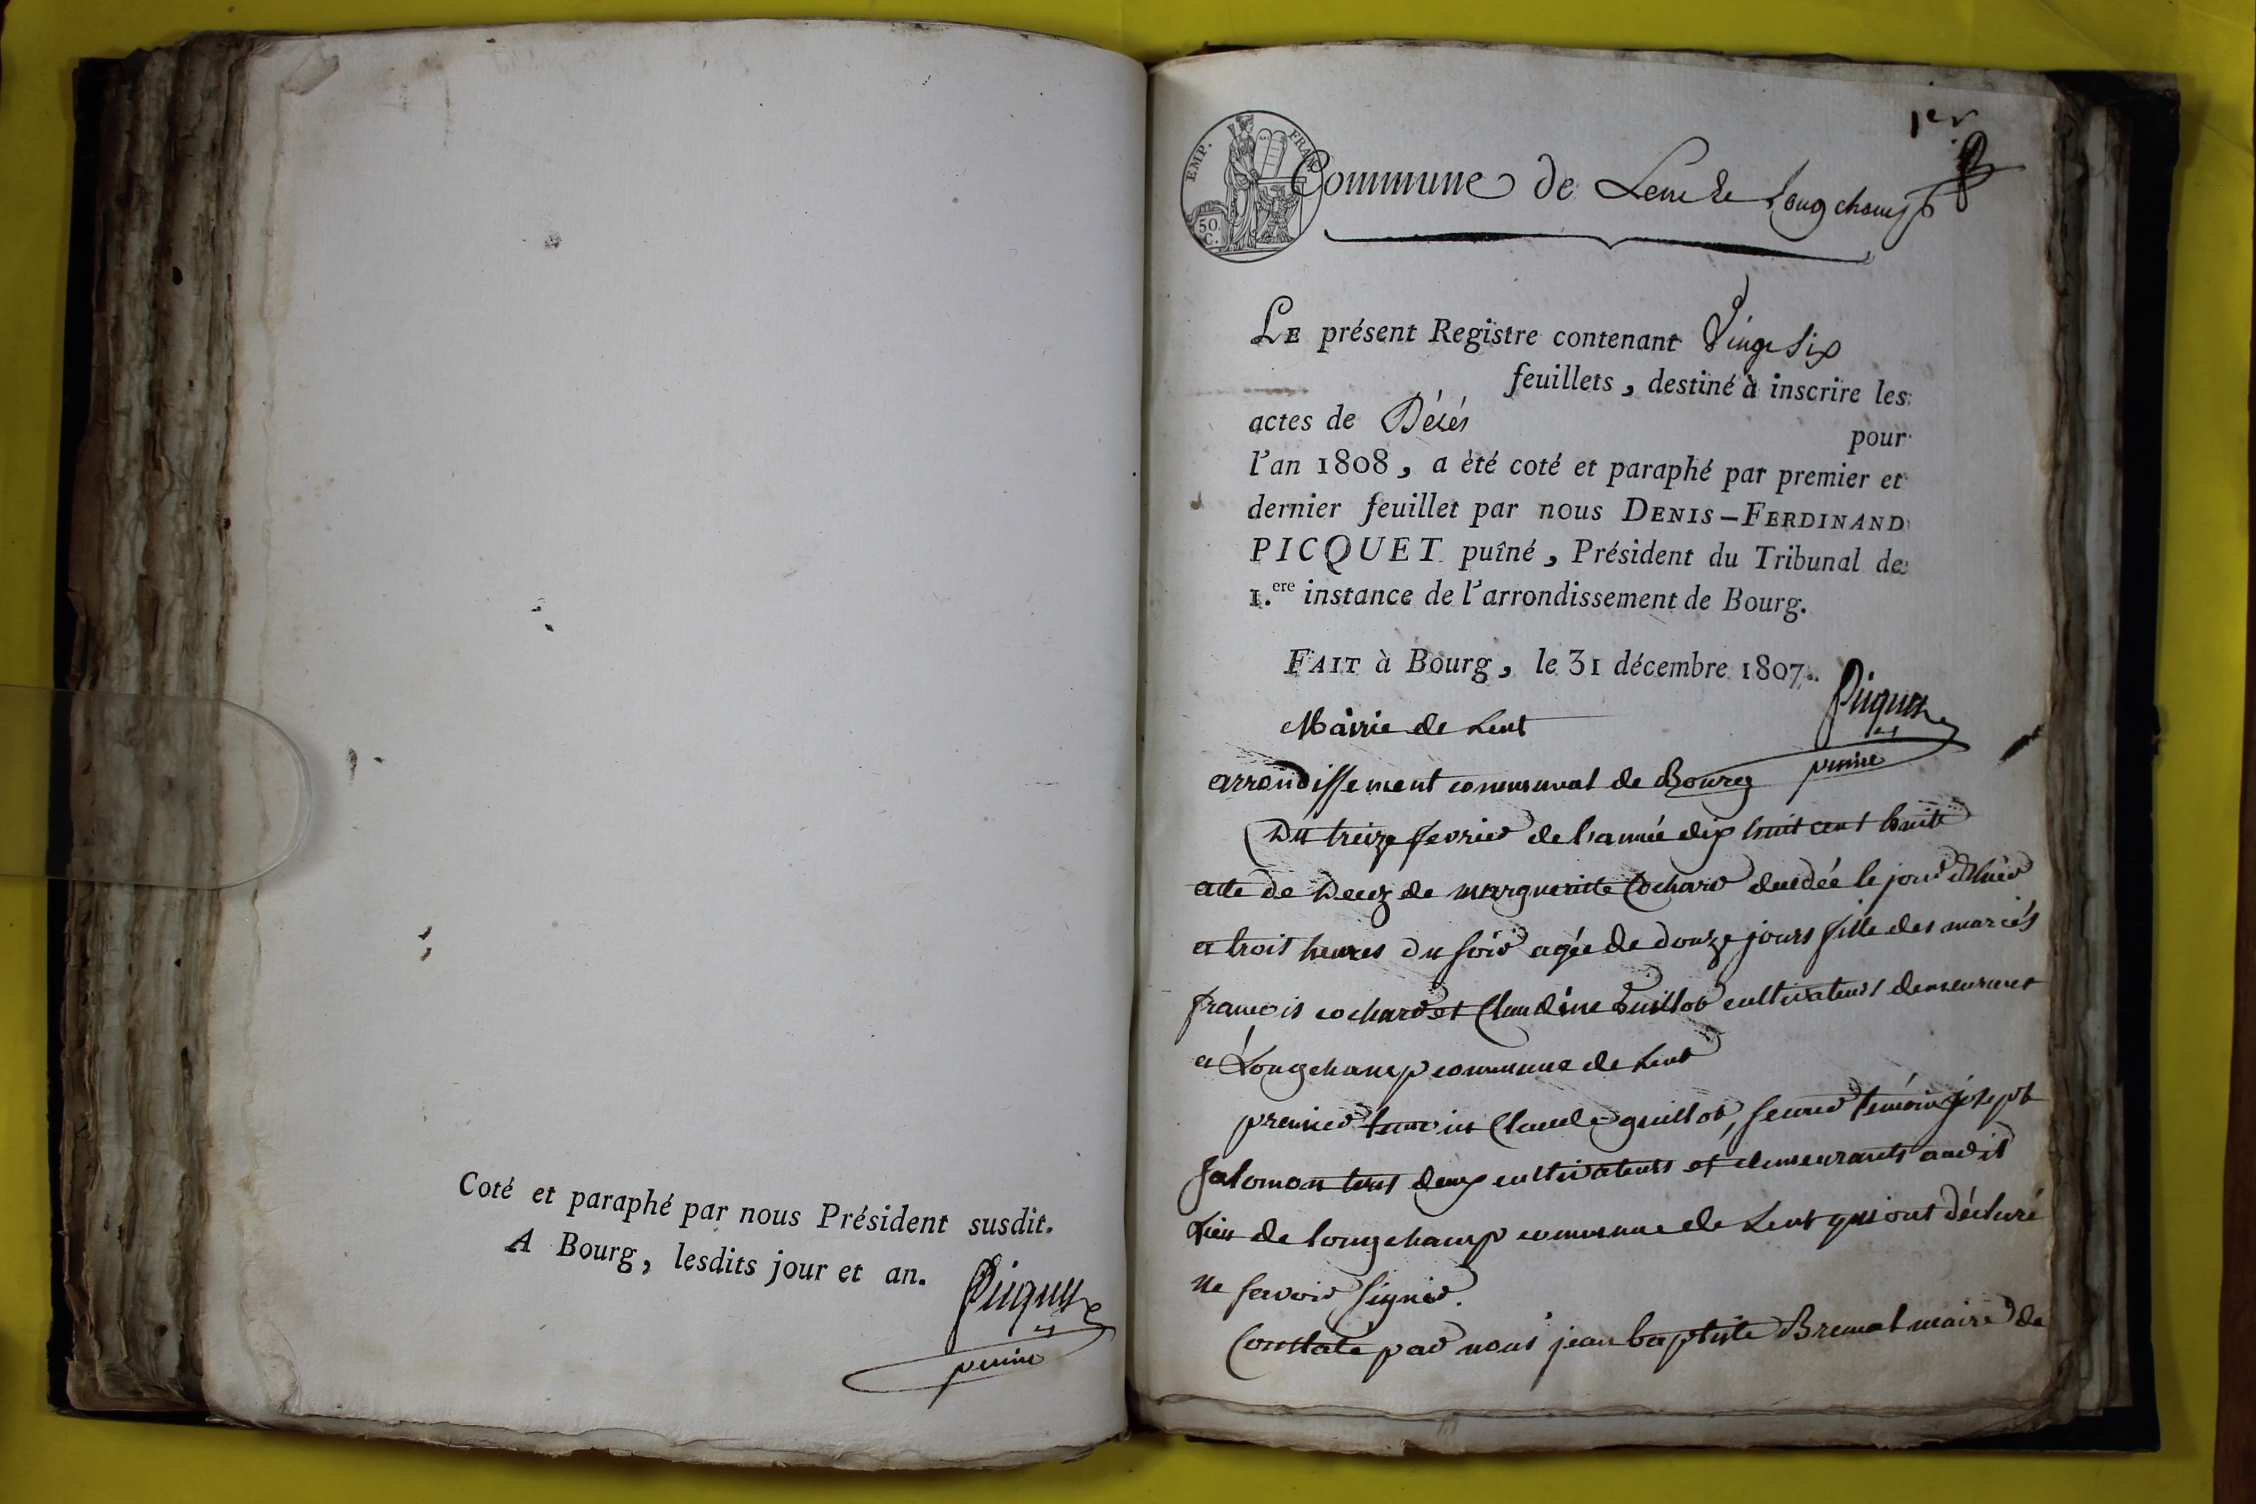 Coté et paraphé par nous Président susdit.
A Bourg, lesdits jour et an.
Picquet
puiné
1er
EMP. FRAN.
50 C.
Commune de Lent & Longchamp
LE présent Registre contenant Vingt six
feuillets, destiné à inscrire les
actes de Décés
pour
l'an 1808, a été coté et paraphé par premier et
dernier feuillet par nous DENIS-FERDINAND
PICQUET puîné, Président du Tribunal de
1.ere instance de l'arrondissement de Bourg.
FAIT à Bourg, le 31 décembre 1807.
Picquet
puiné
Mairie de Lent
arrondissement communal de Bourg
Du treize fevrier de l'année dix huit cent huit
acte de Decez de margueritte Cochard decedée le jour d'hier
a trois heures du soir agée de douze jours fille des mariés
francois cochard et Claudine Guillot cultivateurs demeurant
a Longchamp commune de Lent
premier temoin Claude guillot, second témoin joseph
salomon tous deux cultivateurs et demeurants audit
Lieu de longchamp commune de Lent qui ont déclaré
ne savoir signer.
Constaté par nous jean baptiste Brunet maire de